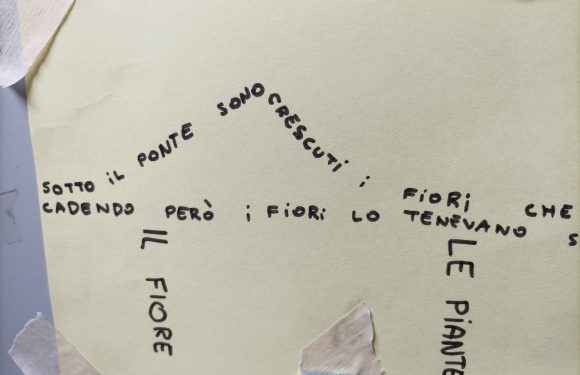 SOTTO IL PONTE SONO CRESCUTI I FIORI CHE
CADENDO PERÒ I FIORI LO TENEVANO S
IL FIORE
LE PIANTE